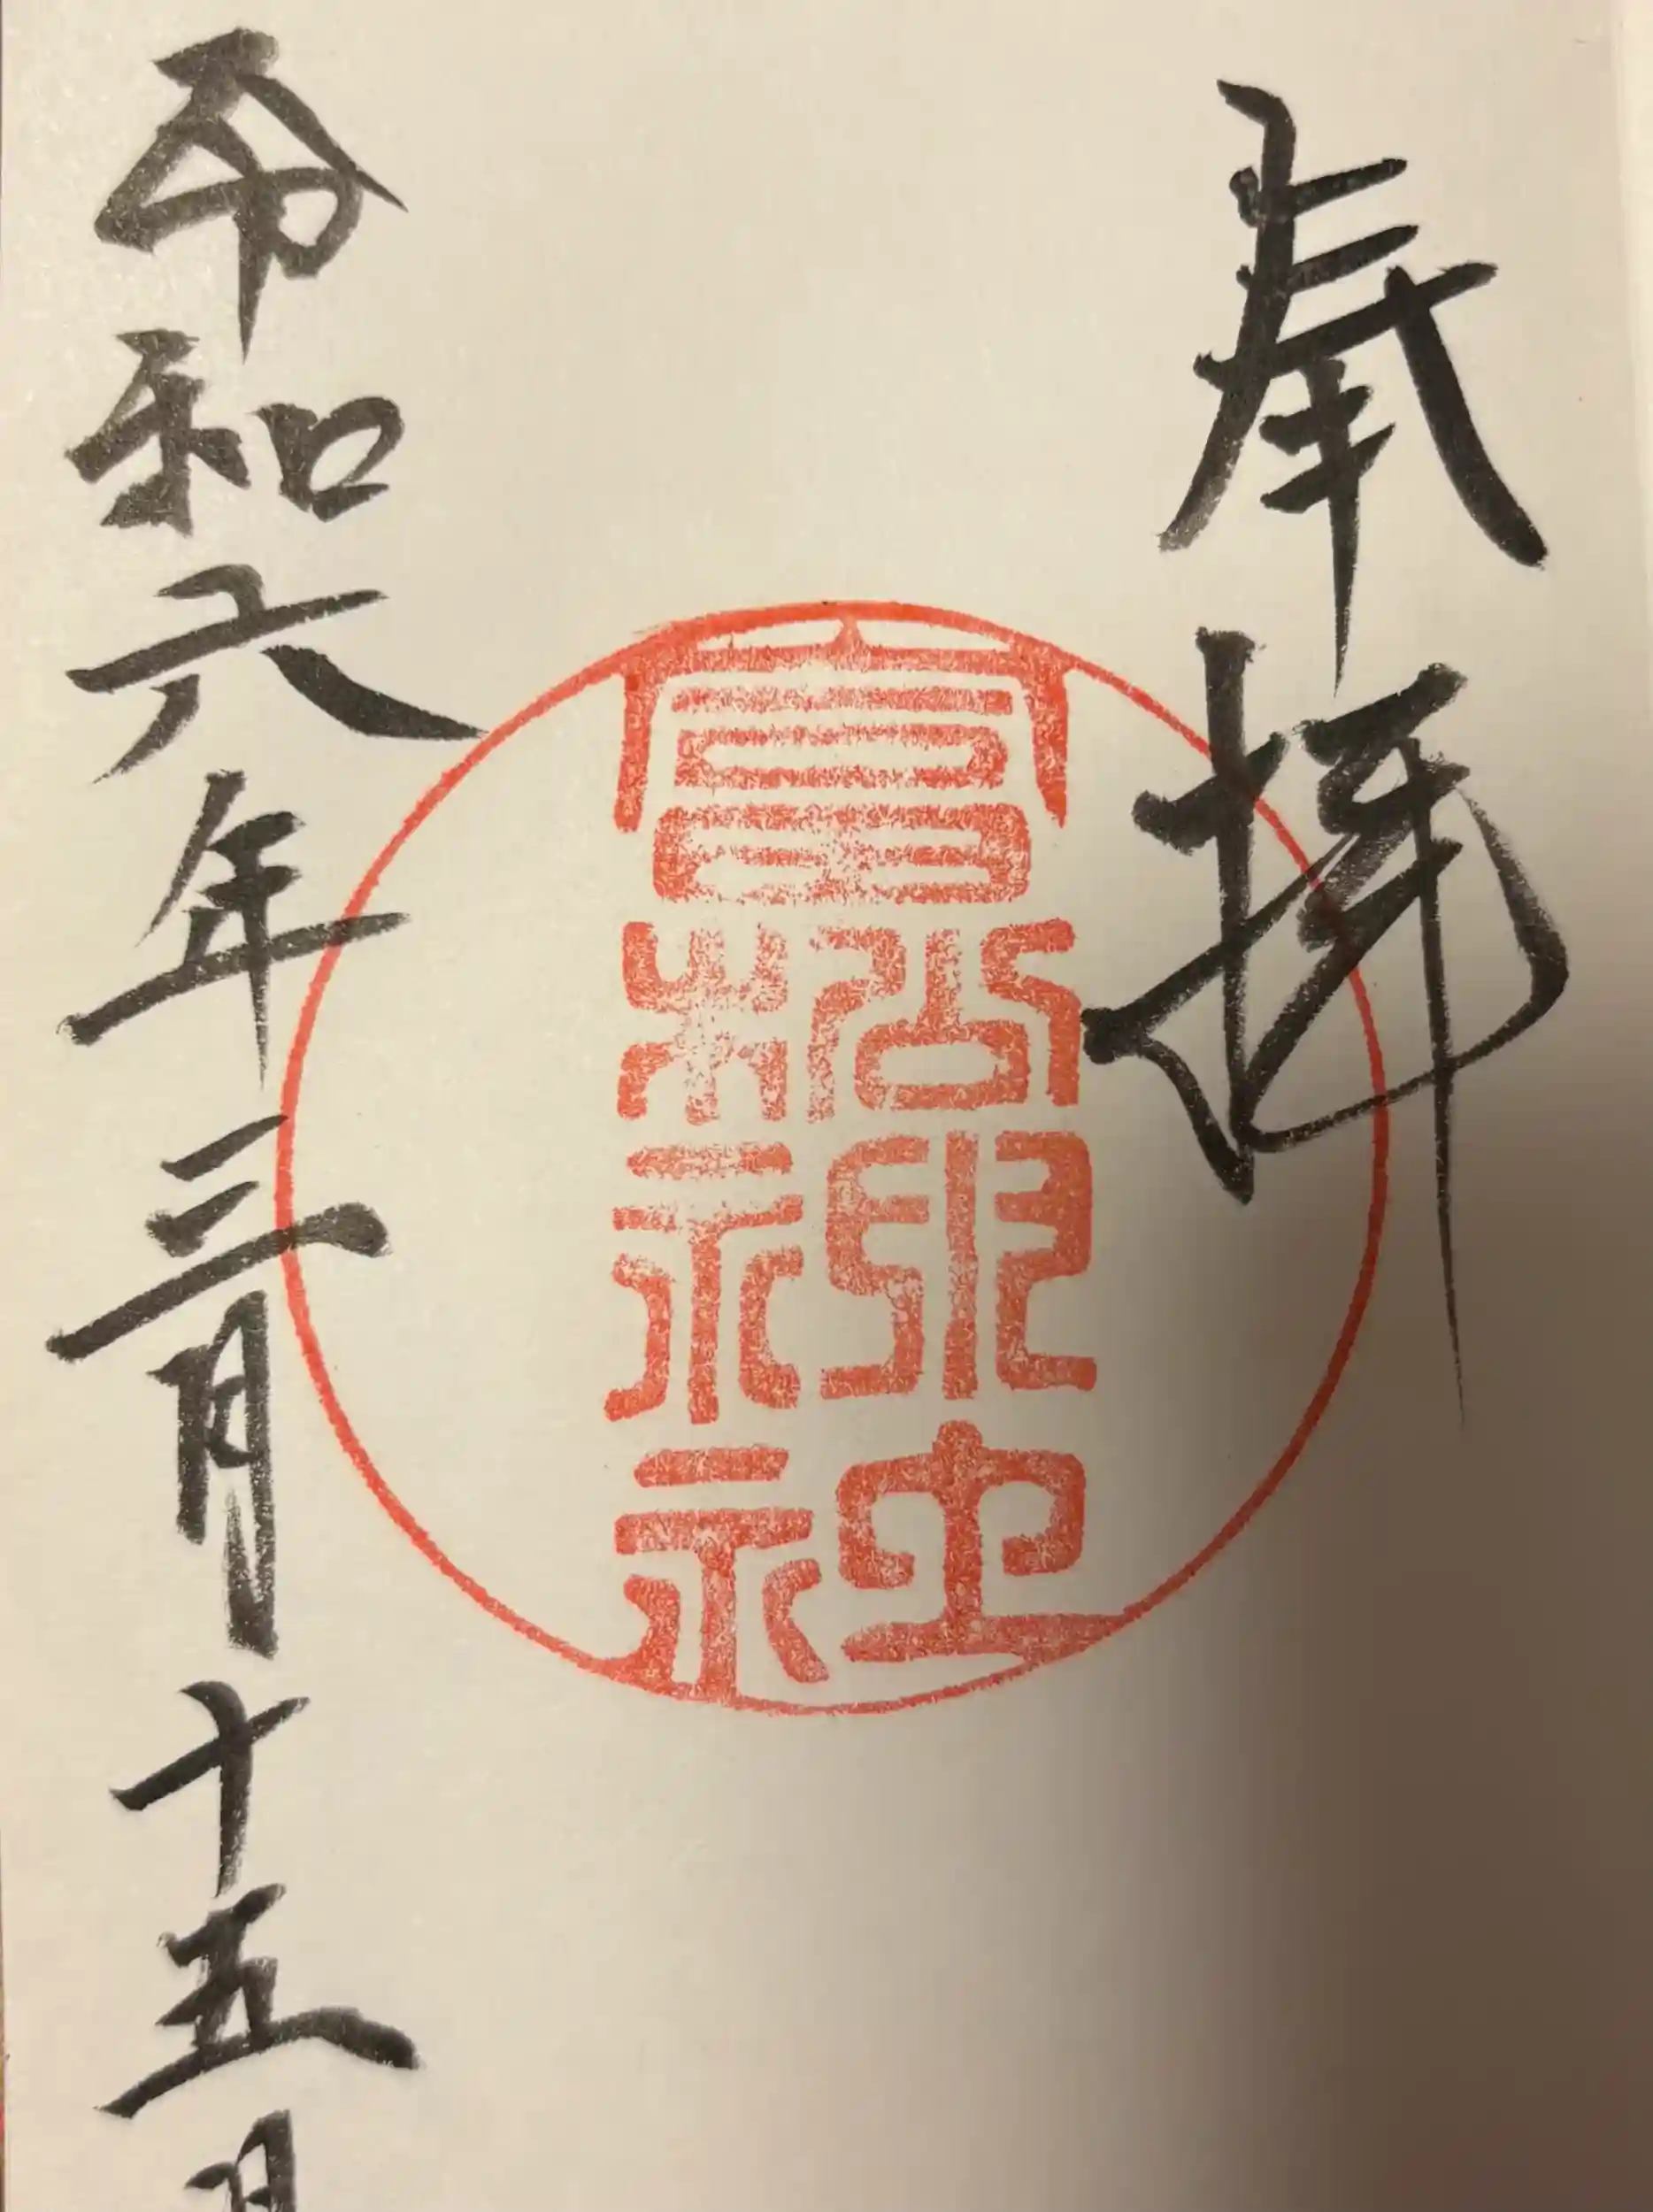 奉拝
富松神社
令和六年三月十五日